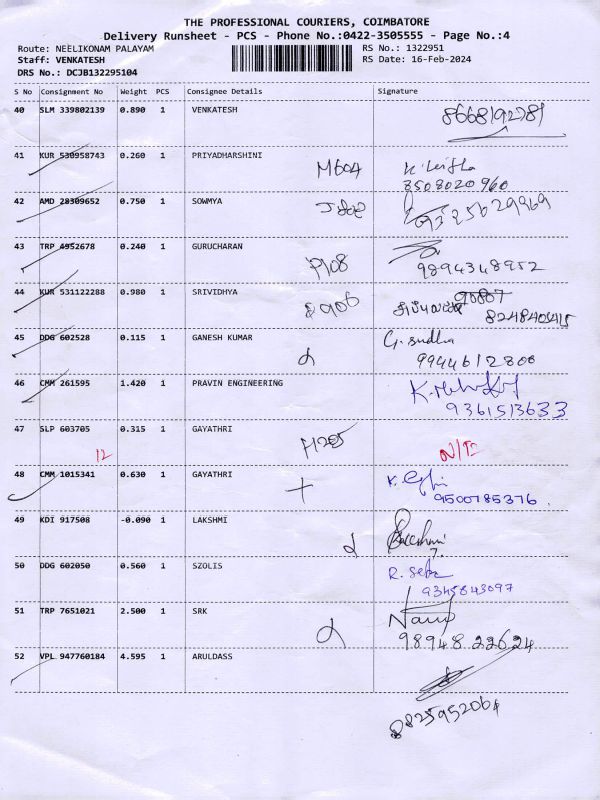 THE PROFESSIONAL COURIERS, COIMBATORE
Delivery Runsheet - PCS - Phone No.:0422-3505555 - Page No.:4
Route: NEELIKONAM PALAYAM RS No.: 1322951
Staff: VENKATESH RS Date: 16-Feb-2024
DRS No.: DCJB132295104
S No Consignment No Weight PCS Consignee Details Signature
40 SLM 339802139 0.890 1 VENKATESH 8668192781
41 KUR 530958743 0.260 1 PRIYADHARSHINI M604
8508020960
42 AMD 28309652 0.750 1 SOWMYA
43 TRP 4952678 0.240 1 GURUCHARAN P108
9894348952
44 KUR 531122288 0.980 1 SRIVIDHYA
45 DDG 602528 0.115 1 GANESH KUMAR G. Sudha
9944612800
46 CMM 261595 1.420 1 PRAVIN ENGINEERING
9361513633
47 SLP 603705 0.315 1 GAYATHRI H205
12
48 CMM 1015341 0.630 1 GAYATHRI
9500785376
49 KDI 917508 -0.090 1 LAKSHMI
50 DDG 602050 0.560 1 SZOLIS
9345843097
51 TRP 7651021 2.500 1 SRK
98948 22624
52 VPL 947760184 4.595 1 ARULDASS
8825952064